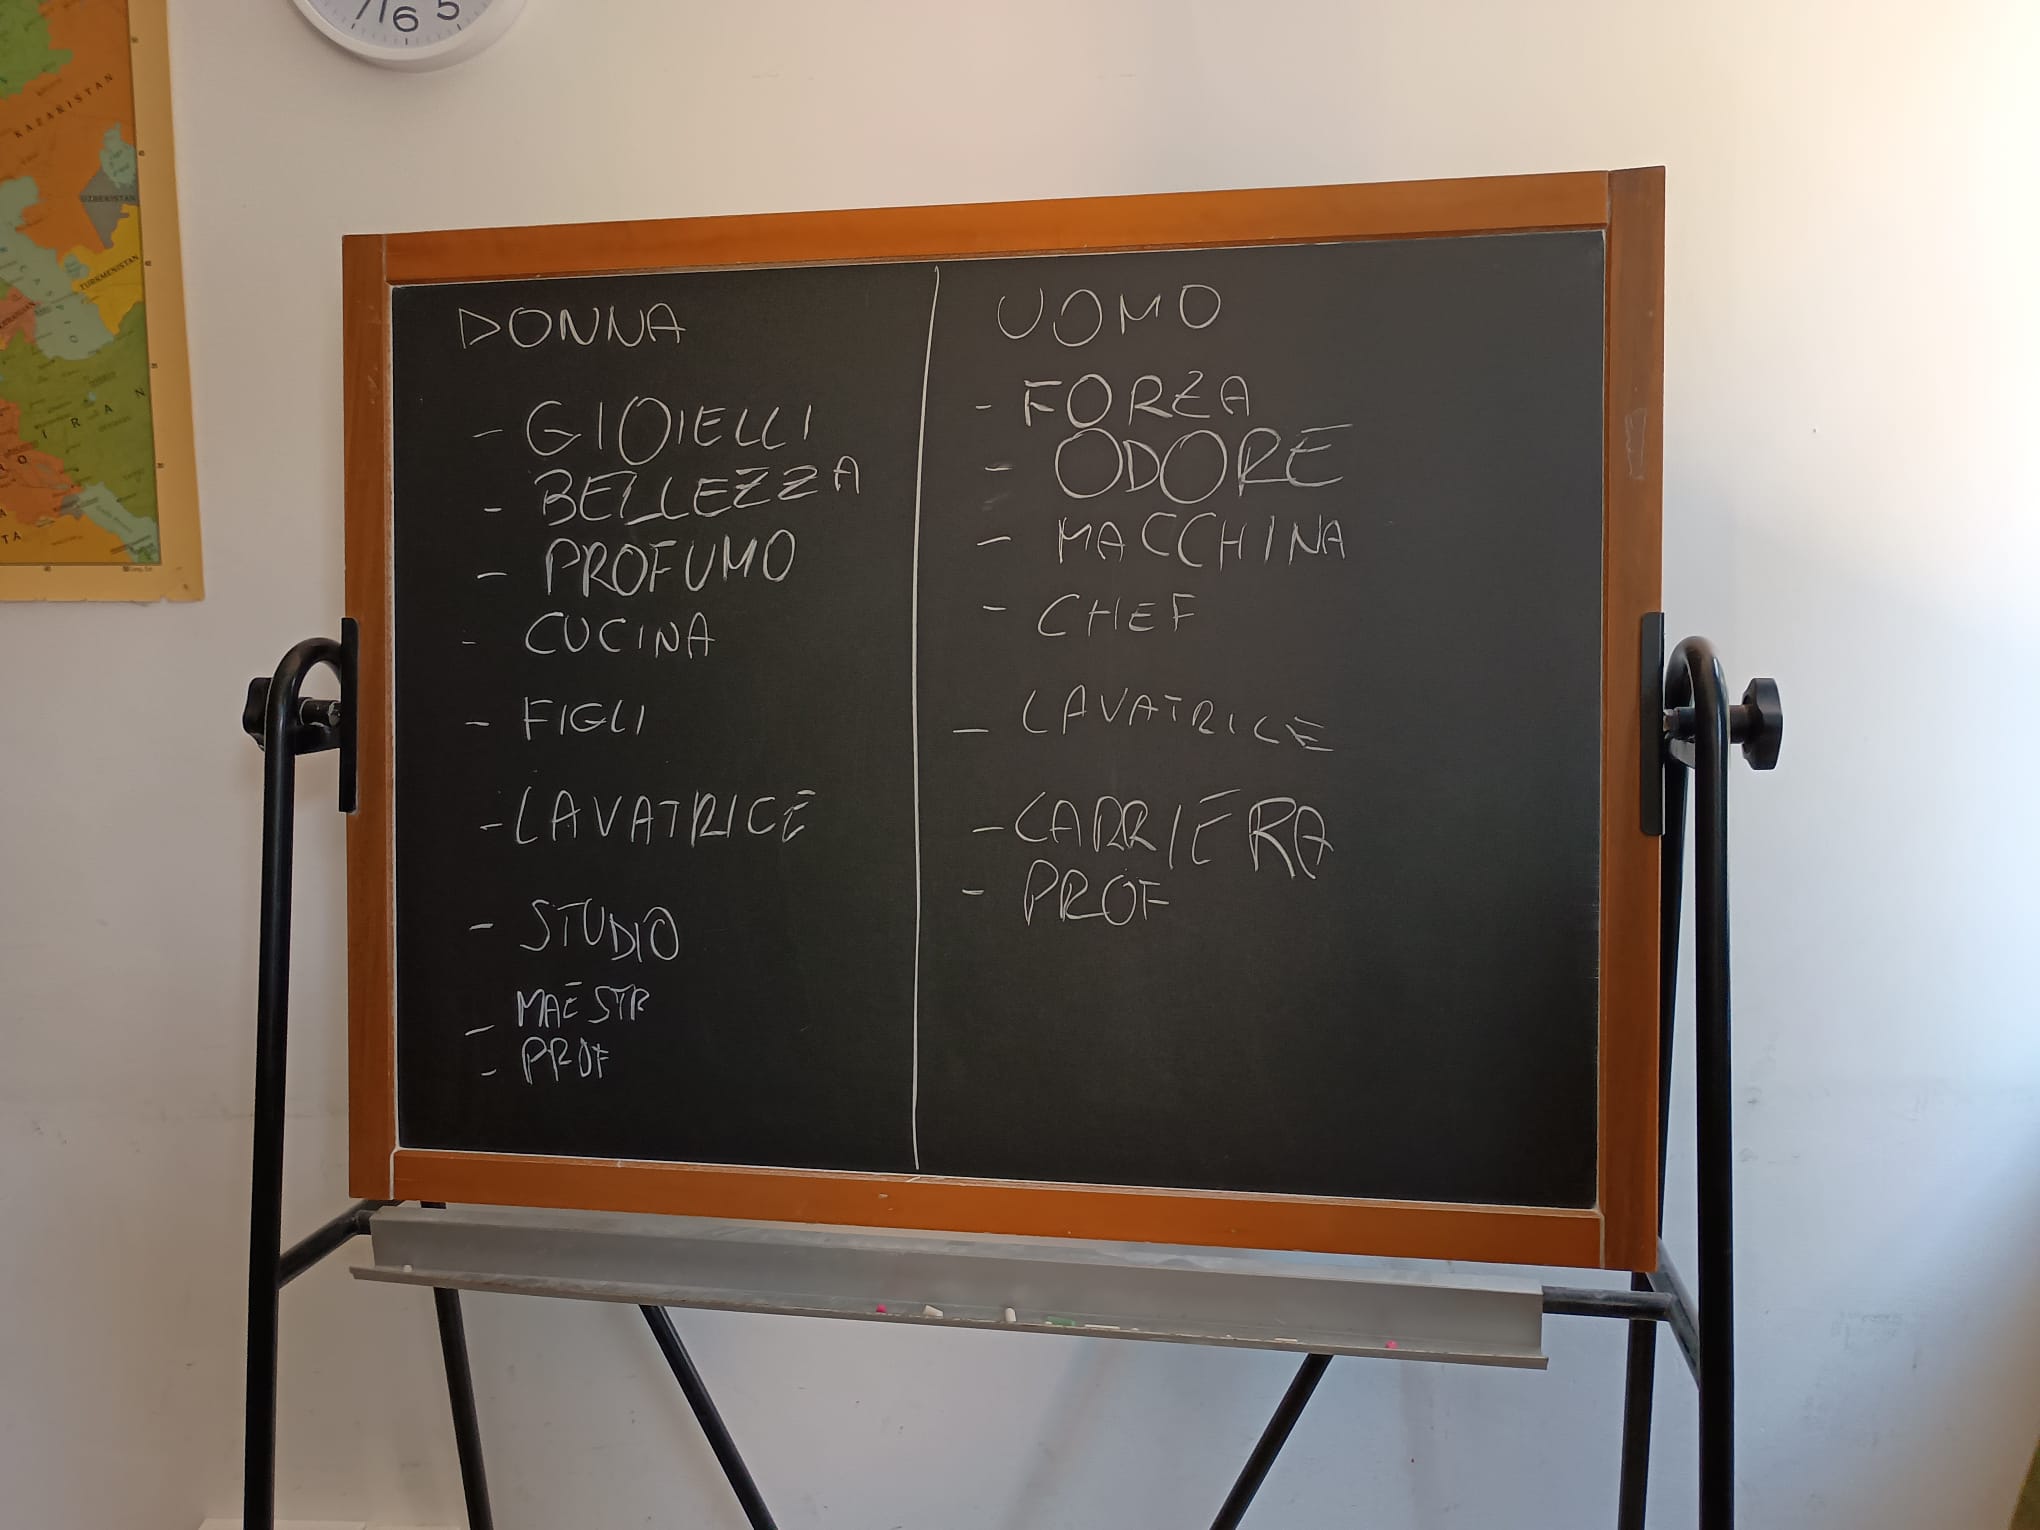 7 6 5
KAZAKISTAN
UZBEKISTAN
TURKMENISTAN
IRAN
DONNA
- GIOIELLI
- BELLEZZA
- PROFUMO
- CUCINA
- FIGLI
- LAVATRICE
- STUDIO
- MAESTR
- PROF
UOMO
- FORZA
- ODORE
- MACCHINA
- CHEF
- LAVATRICE
- CARRIERA
- PROF